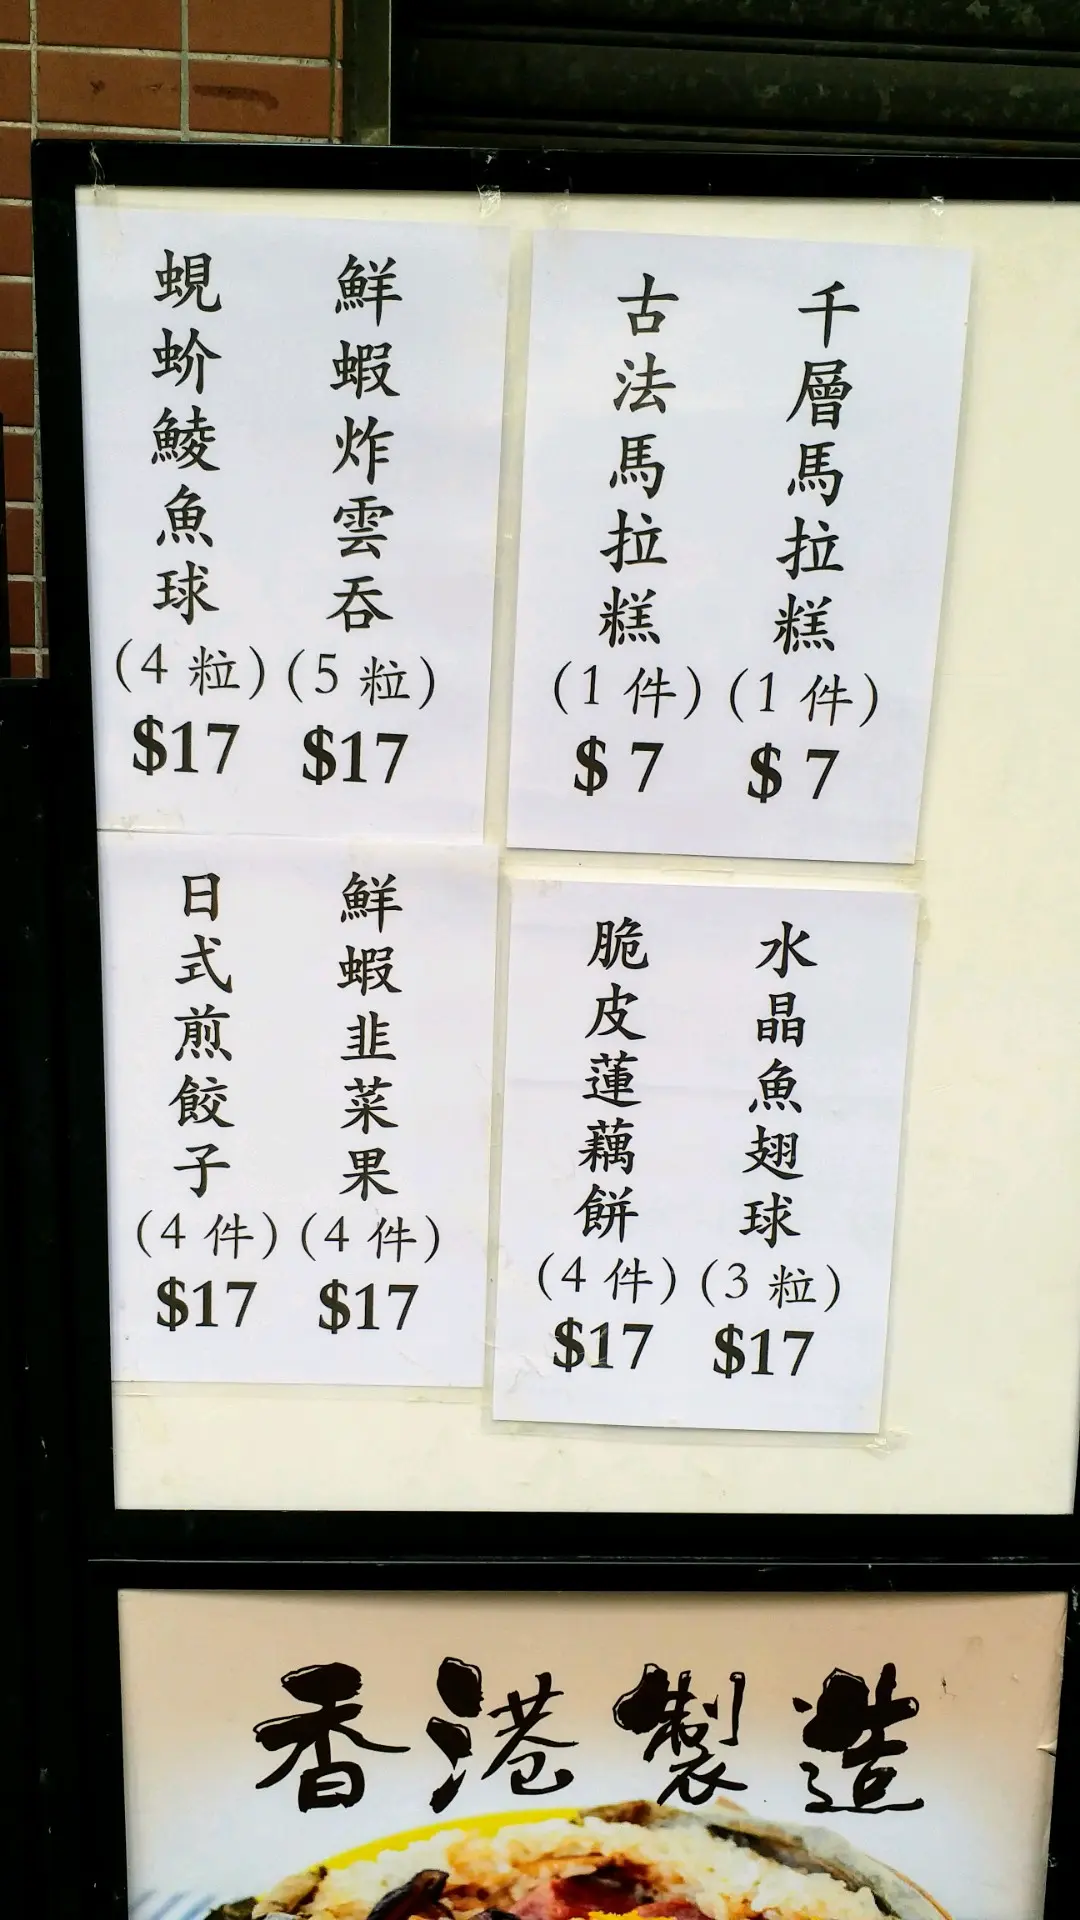 鮮蝦炸雲吞
(5 粒)
$17
蜆蚧鯪魚球
(4 粒)
$17
千層馬拉糕
(1 件)
$ 7
古法馬拉糕
(1 件)
$ 7
鮮蝦韭菜果
(4 件)
$17
日式煎餃子
(4 件)
$17
水晶魚翅球
(3 粒)
$17
脆皮蓮藕餅
(4 件)
$17
香港製造